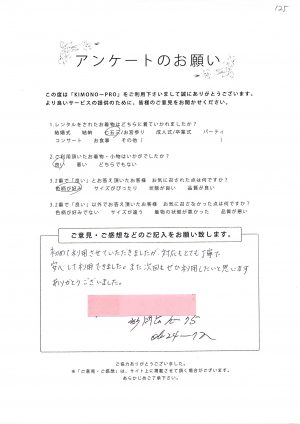 125
アンケートのお願い
この度は「KIMONO-PRO」をご利用下さいまして誠にありがとうございます。
より良いサービスの提供のために、皆様のご意見をお聞かせください。
1.レンタルをされたお着物はどちらに着ていかれましたか?
結婚式 結納 七五三/お宮参り 成人式/卒業式 パーティ
コンサート お食事 その他(
2.ご利用頂いたお着物・小物はいかがでしたか?
良い 悪い どちらでもない
3.2番で「良い」とお答え頂いたお方 お気に召された点は何ですか?
色柄が好み サイズがぴったり 状態が良い 品質が良い
3.2番で「良い」以外でお答え頂いたお方 お気に召さなかった点は何ですか?
色柄が好みでない サイズが違う 着物の状態が悪かった 品質が悪い
ご意見・ご感想などのご記入をお願い致します。
初めて利用させていただきましたが、対応もとても丁寧で
安心して利用できました。また次回もぜひ利用したいと思います
ありがとうございました。
ご協力ありがとうございました。
※「ご意見・ご感想」は、サイト上に掲載させて頂く場合がございます。
あらかじめご了承下さい。